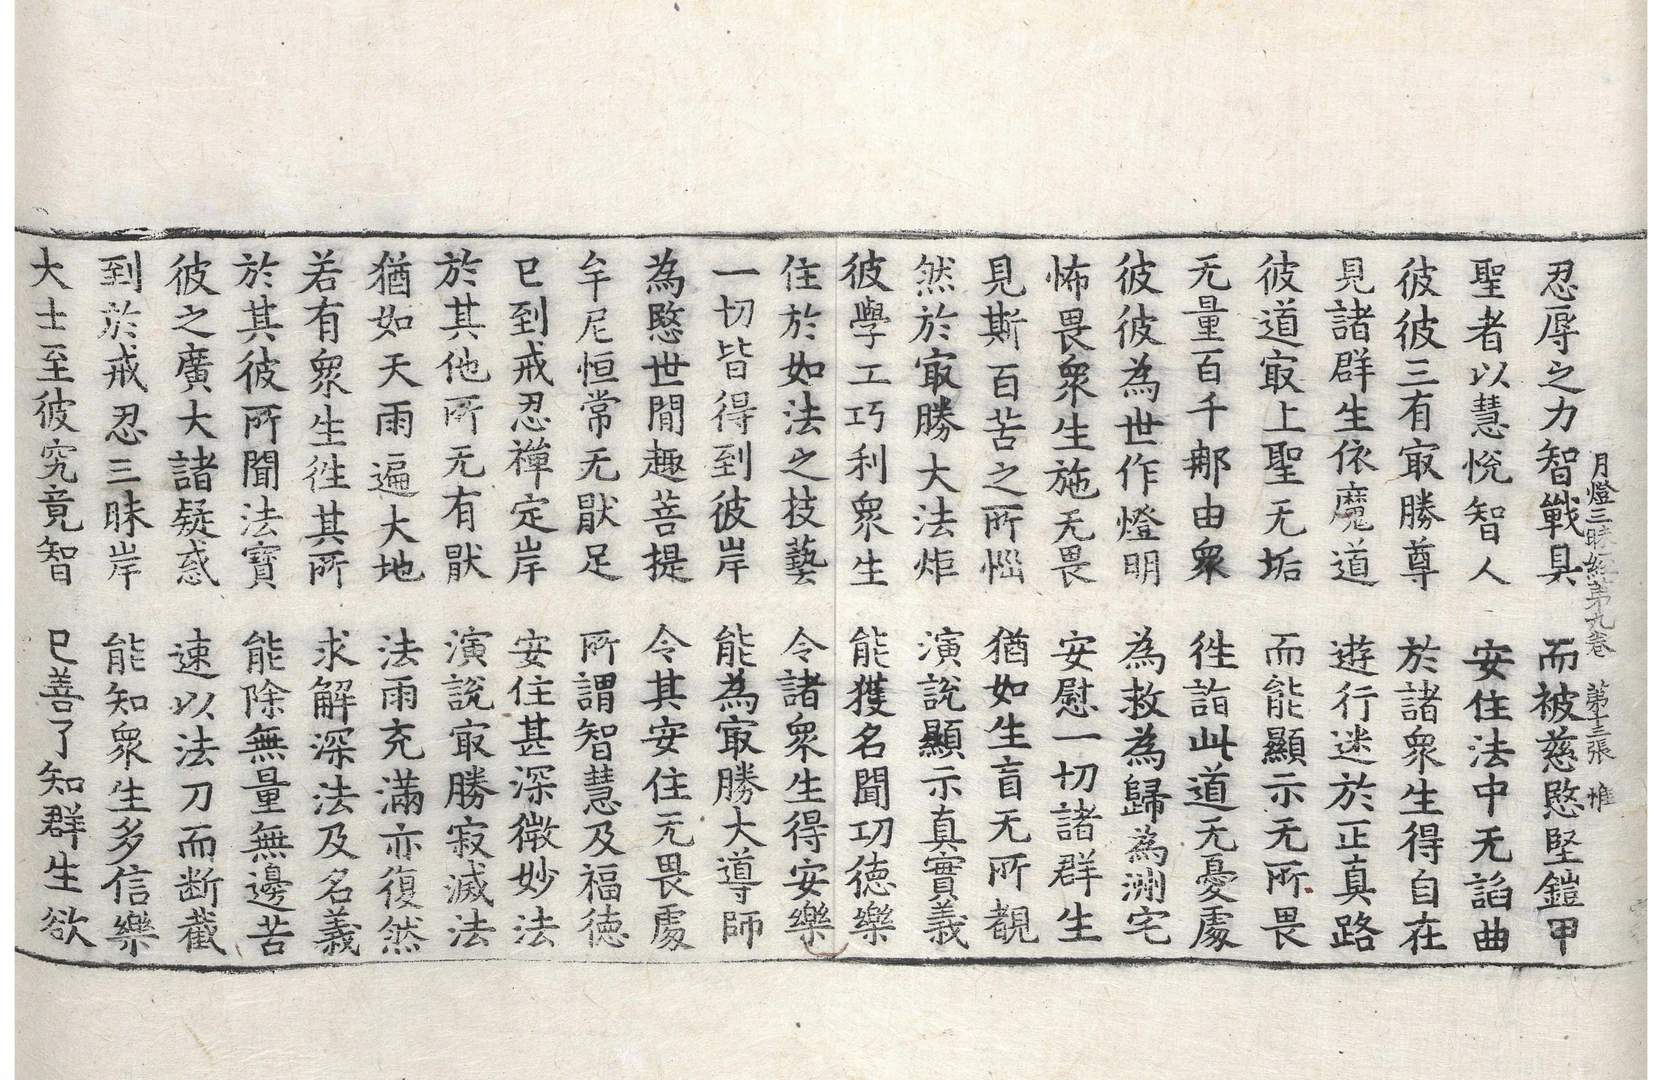 月燈三昧經第九卷 第十三張 惟
忍辱之力智戰具 而被慈愍堅鎧甲
聖者以慧悅智人 安住法中无諂曲
彼彼三有㝡勝尊 於諸衆生得自在
見諸群生依魔道 遊行迷於正真路
彼道㝡上聖无垢 而能顯示无所畏
无量百千那由衆 徃詣此道无憂處
彼彼為世作燈明 為救為歸為洲宅
怖畏衆生施无畏 安慰一切諸群生
見斯百苦之所惱 猶如生盲无所覩
然於㝡勝大法炬 演說顯示真實義
彼學工巧利衆生 能獲名聞功德樂
住於如法之技藝 令諸衆生得安樂
一切皆得到彼岸 能為㝡勝大導師
為愍世間趣菩提 令其安住无畏處
牟尼恒常无猒足 所謂智慧及福德
已到戒忍禪定岸 安住甚深微妙法
於其他所无有猒 演說㝡勝寂滅法
猶如天雨遍大地 法雨充滿亦復然
若有衆生徃其所 求解深法及名義
於其彼所聞法寶 能除無量無邊苦
彼之廣大諸疑惑 速以法刀而断截
到於戒忍三昧岸 能知衆生多信樂
大士至彼究竟智 已善了知群生欲